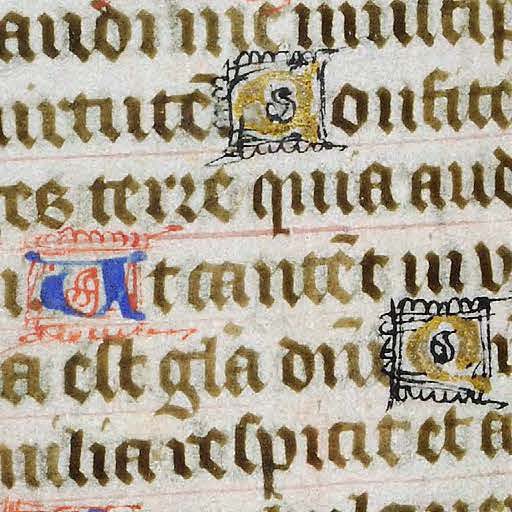 audi me multip
uirtutē Confite
es terre quia aud
i. Et cantēt in v
a est glā dn̄i Q
milia respicit et a